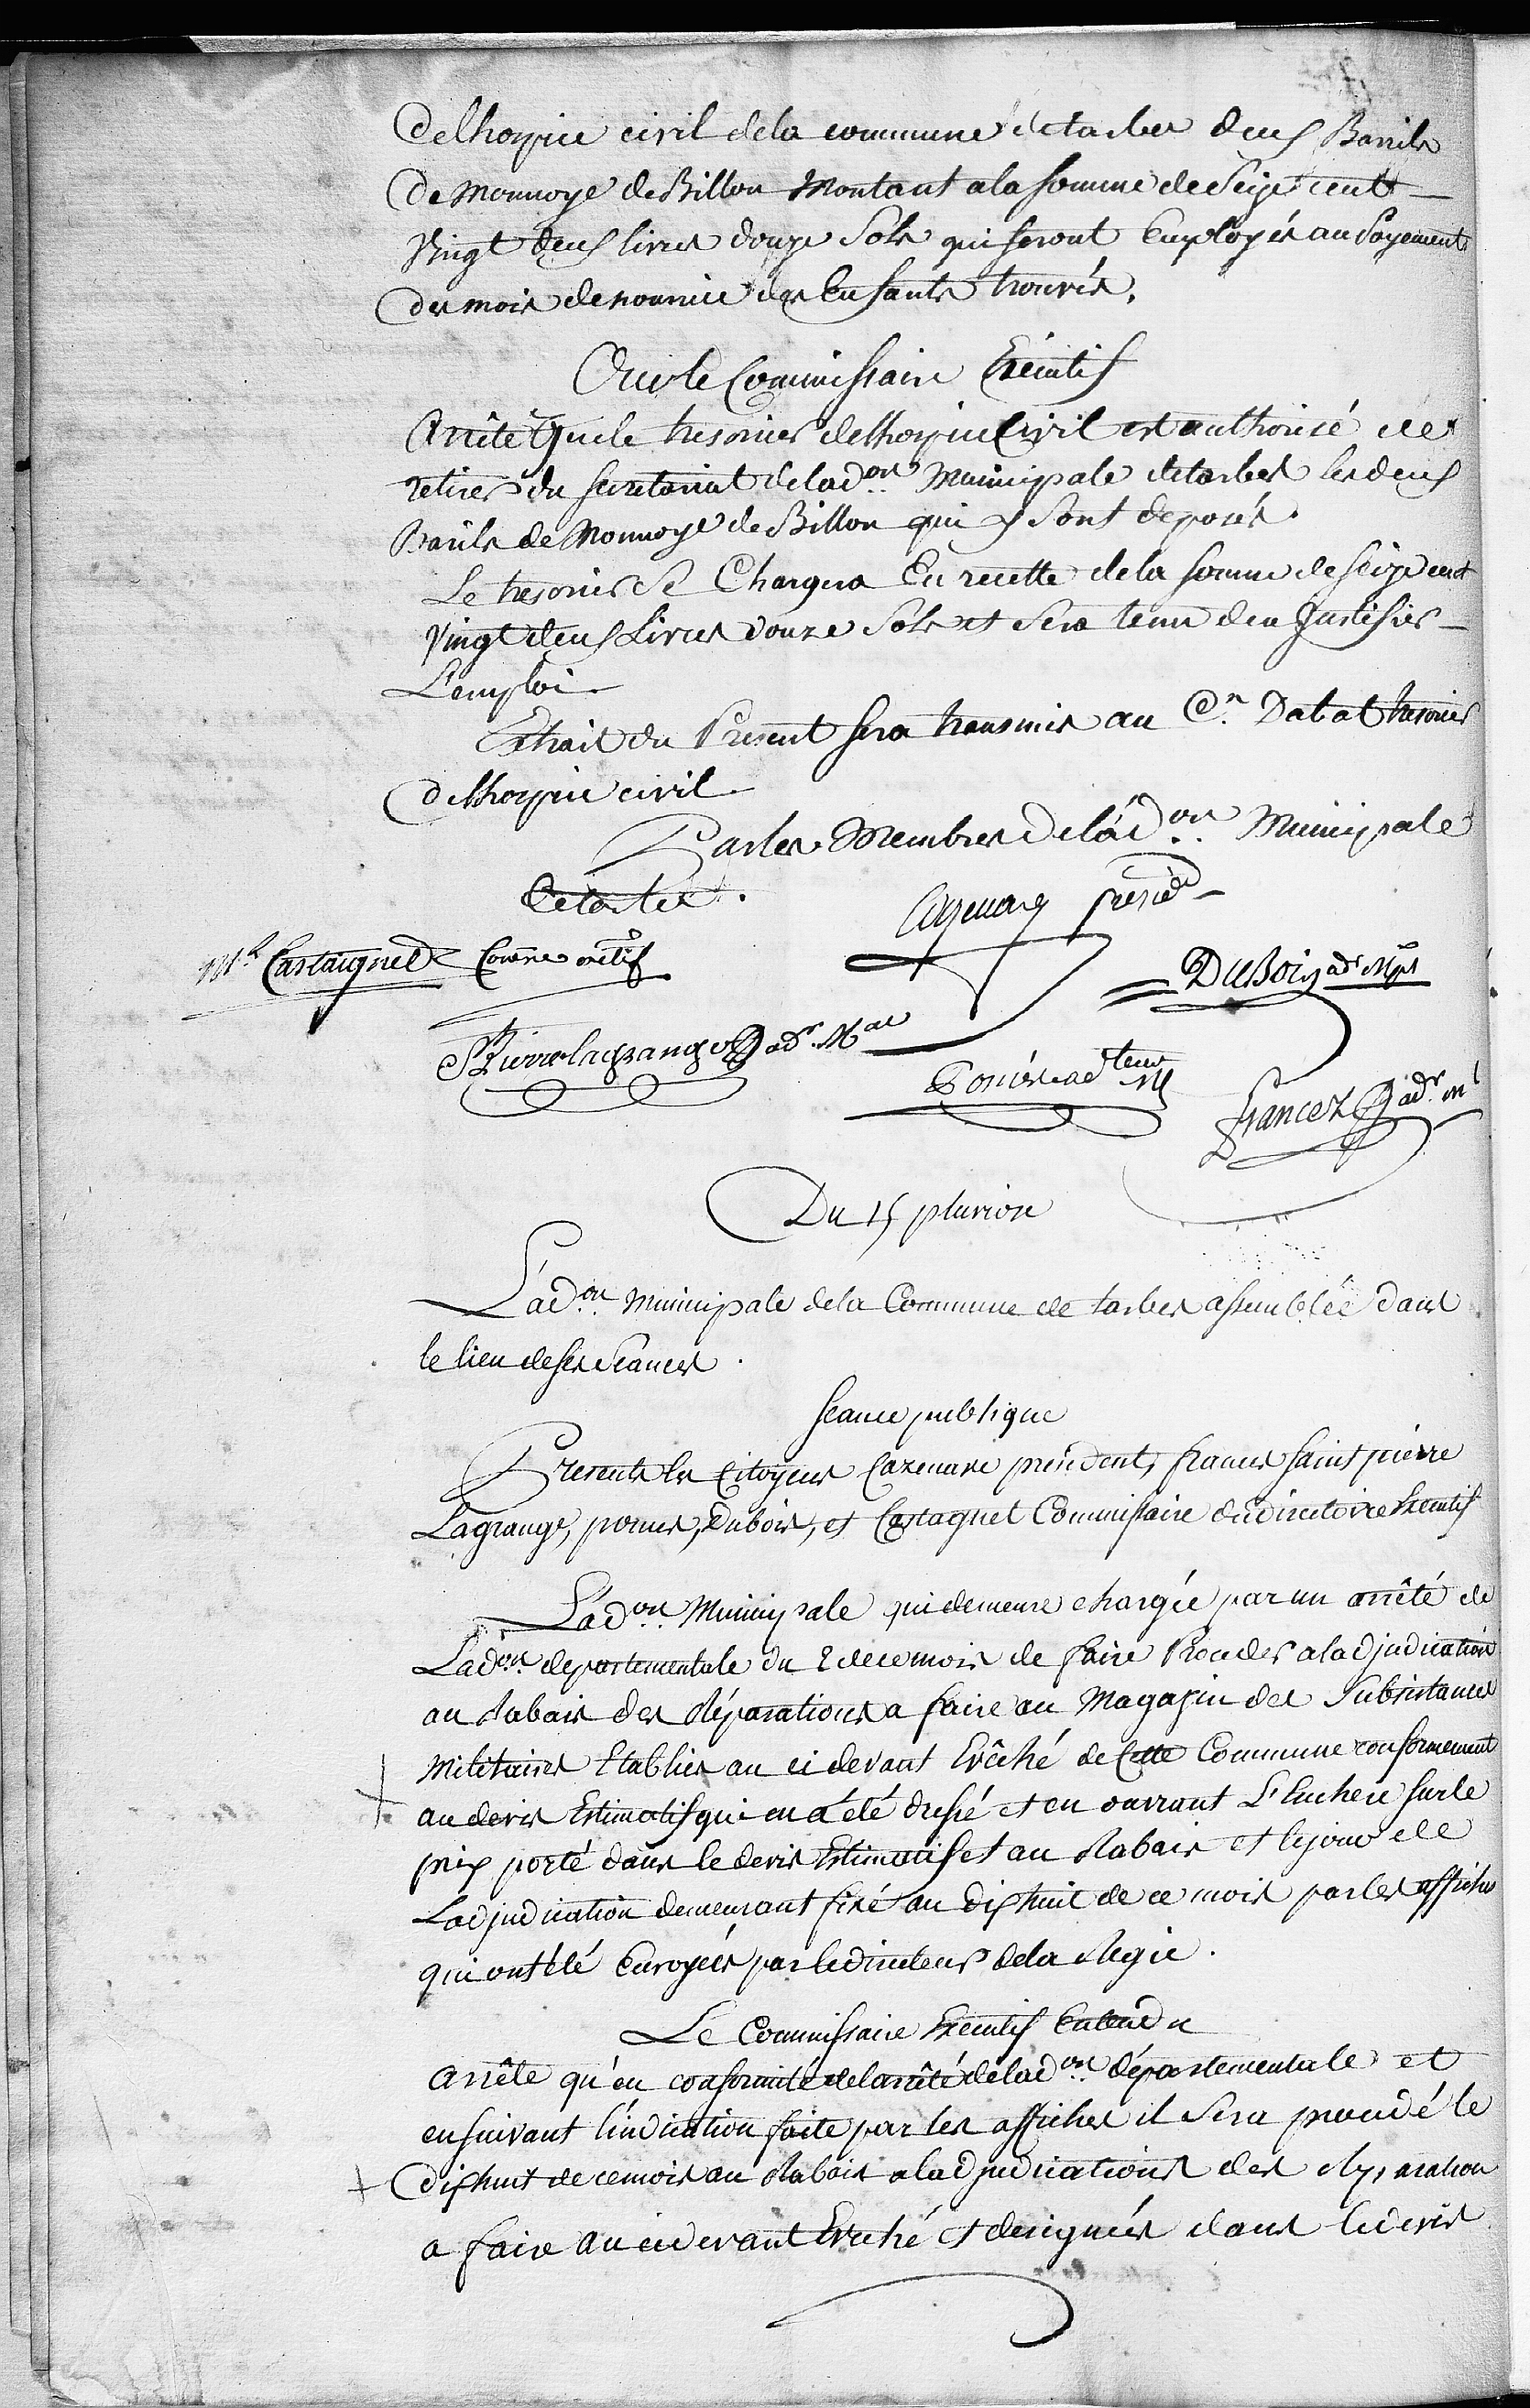 de lhospice civil de la commune de tarbes deux Barrils
de Monnoye de Billon Montant a la somme de Seize cent
Vingt deux livres douze Sols qui seront Employés au Payement
des mois de nourrice des Enfants trouvés.
Oui le Commissaire Exécutif
Arrête Que le tresorier de lhospice Civil est authorisé de
retirer du secretariat de lad.on Municipale de tarbes les deux
Barils de Monnoye de Billon qui y Sont deposés.
Le tresorier Se Chargera En recette de la somme de seize cent
Vingt deux Livres douze Sols et Sera tenu den Justifier
L'emploi
Extrait du Present sera transmis au C.n Dabat tresorier
de lhospice civil
Par les Membres de lad.on Municipale
de tarbes.
Cazenave presid.
Castaignet Comre extif
DuBois adr Mpl
St Pierre lagrange adr. Mal
Pomès adteur M
francez adr. ml
Du 15 pluviose
L'ad.on Municipale de la Commune de tarbes assemblée dans
le lieu de ses Séances.
seance publique
Presents les Citoyens Cazenave president, frances saint pierre
Lagrange, pomes, dubois, et Castagnet Commissaire du directoire Executif
L'ad.on Municipale qui demeure chargée par un arrêté de
Lad.on departementale du 2 de ce mois de faire Proceder a ladjudication
au Rabais des Réparations a faire au Magasin des Subsistances
Militaires Etablies au ci devant Evêché de Cette Commune conformement
au devis Estimatif qui en a été dressé et en ouvrant L'Enchere sur le
prix porté dans le devis Estimatif et au Rabais et le jour de
Ladjudication demeurant fixé au dixhuit de ce mois par les affiches
qui ont été Envoyées par le directeur de la Regie.
Le Commissaire Executif Entendu
Arrête qu'en conformité de larrêté de lad.on départementale et
en suivant l'indication faite par les affiches il Sera procédé le
dixhuit de ce mois au Rabais a ladjudications des Réparation
a faire au ci devant Evêché et designées dans le devis